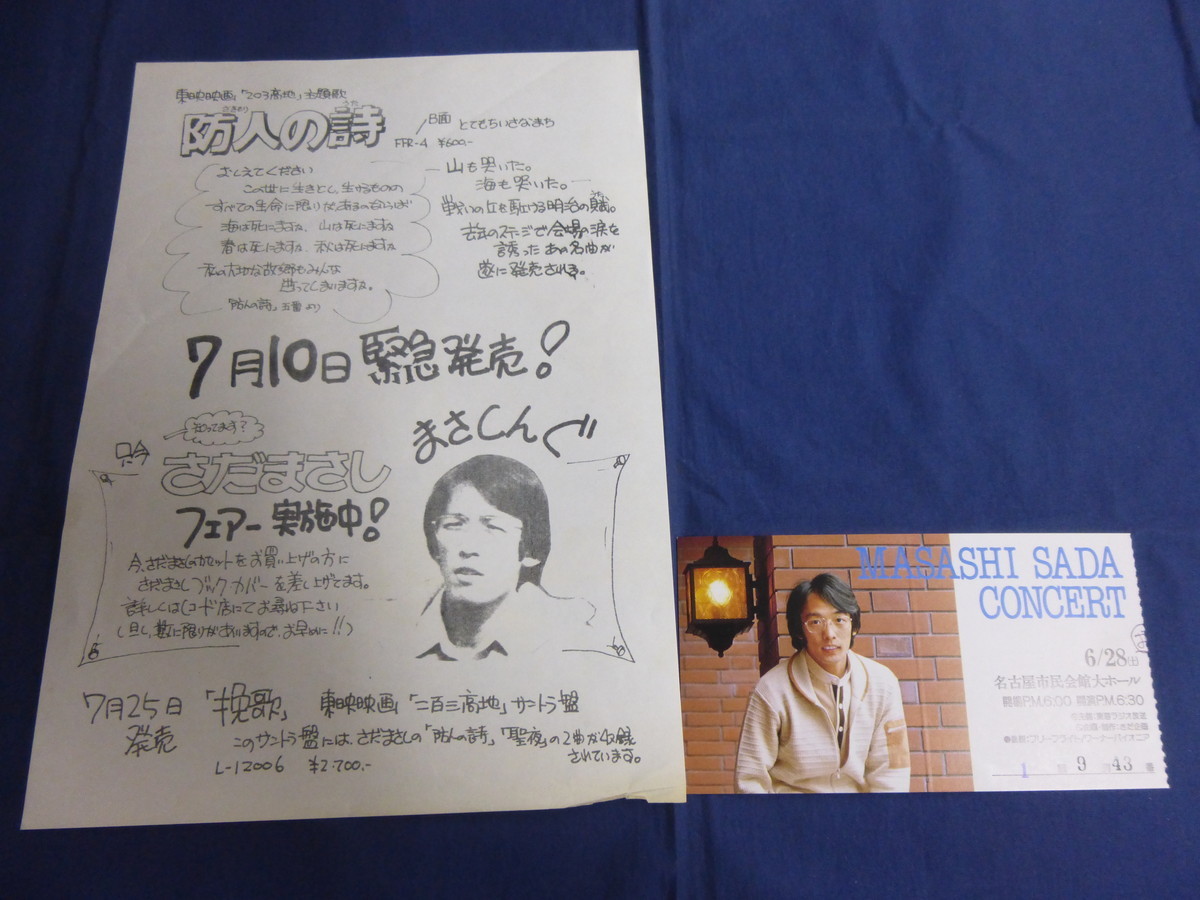 東映映画「203高地」主題歌
さきもり うた
防人の詩
B面 とてもちいさなまち
FFR-4 ¥600.-
おしえてください
この世に生きとし生けるものの
すべての生命に限りがあるのならば
海は死にますか 山は死にますか
春は死にますか 秋は死にますか
私の大切な故郷もみんな
逝ってしまいますか。
「防人の詩」五番より
― 山も哭いた。
海も哭いた。―
戦いの丘を駈ける明治の賦。
去年のステージで会場の涙を
誘ったあの名曲が
遂に発売される。
7月10日 緊急発売!
知ってます?
只今
さだまさし
フェアー実施中!
まさしんぐ
今、さだまさしのカセットをお買い上げの方に
さだまさしブックカバーを差し上げます。
詳しくはレコード店にてお尋ね下さい
(但し、数に限りがありますので、お早めに!!)
7月25日
発売
「挽歌」 東映映画「二百三高地」サントラ盤
このサントラ盤には、さだまさしの「防人の詩」「聖夜」の2曲が収録
されています。
L-12006 ¥2.700.-
MASASHI SADA
CONCERT
6/28(土)
名古屋市民会館大ホール
開場P.M.6:00 開演P.M.6:30
1 9 43